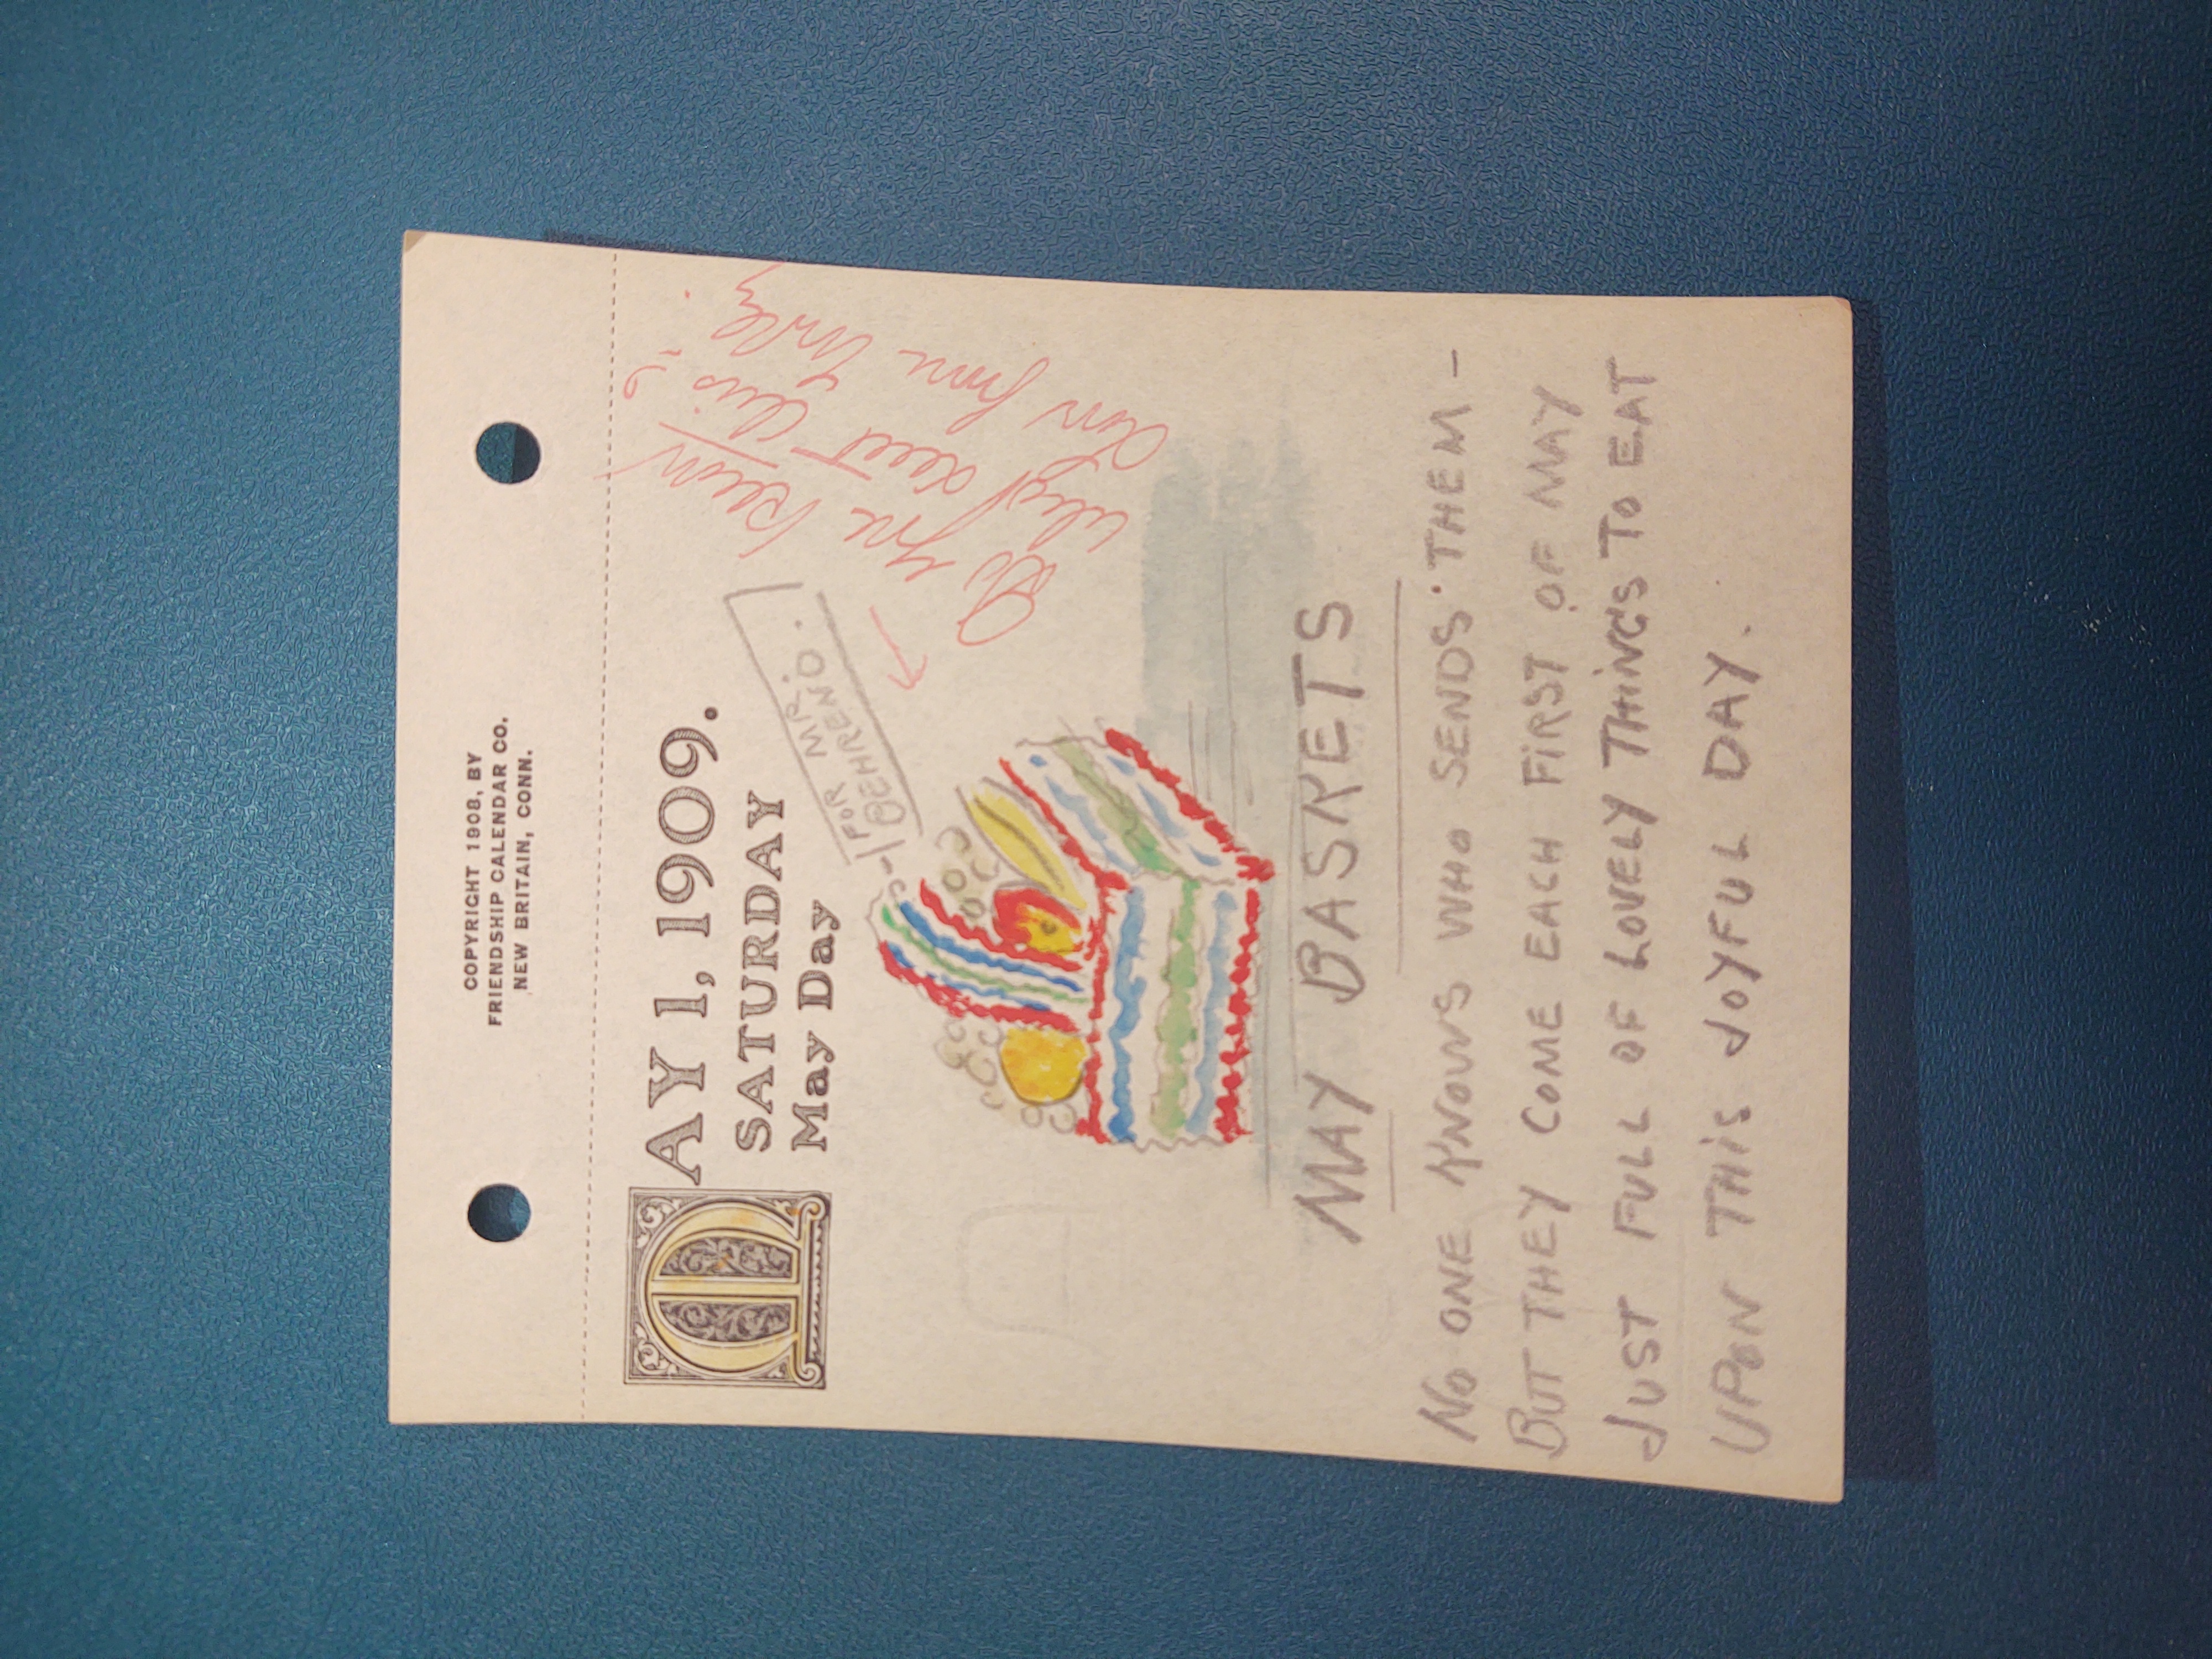 COPYRIGHT 1908, BY
FRIENDSHIP CALENDAR CO.
NEW BRITAIN, CONN.
MAY 1, 1909.
SATURDAY
May Day
FOR MR.
BEHREND.
Do you know
who sent this?
MAY BASKETS
NO ONE KNOWS WHO SENDS THEM -
BUT THEY COME EACH FIRST OF MAY
JUST FULL OF LOVELY THINGS TO EAT
UPON THIS JOYFUL DAY.